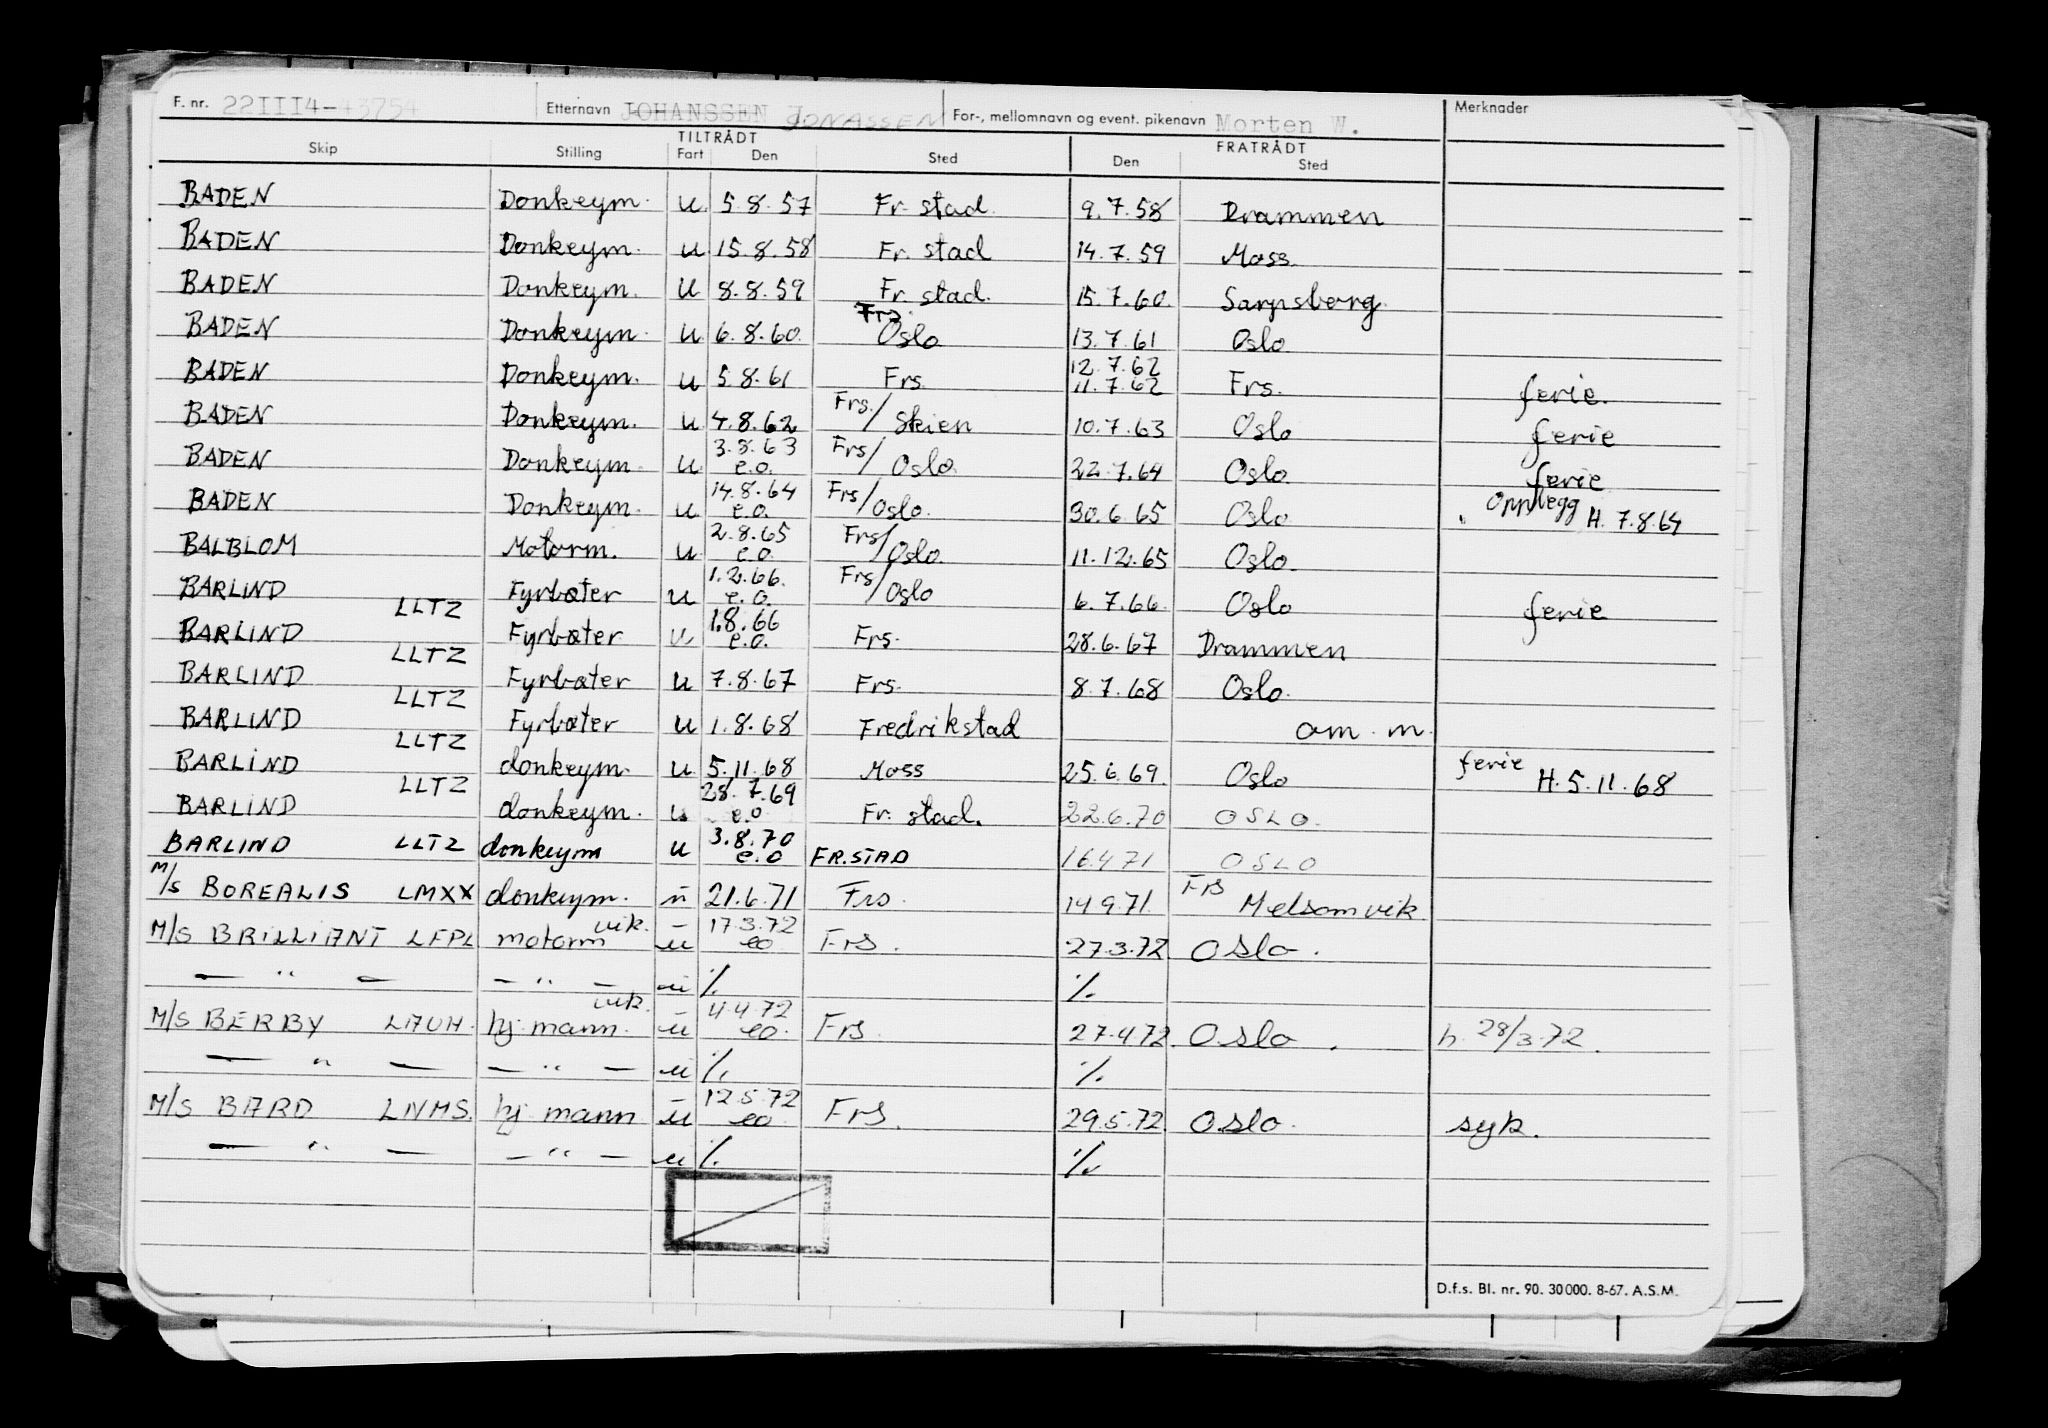 F. nr. 22III4-43754 Etternavn JOHANSSEN JONASSEN For-, mellomnavn og event. pikenavn Morten W. Merknader
TILTRÅDT FRATRÅDT
Skip Stilling Fart Den Sted Den Sted
BADEN Donkeym. u 5.8.57 Fr. stad. 9.7.58 Drammen
BADEN Donkeym. u 15.8.58 Fr. stad 14.7.59 Moss.
BADEN Donkeym. u 8.8.59 Fr. stad. 15.7.60 Sarpsborg.
BADEN Donkeym. u 6.8.60. Frs. Oslo 13.7.61 Oslo
BADEN Donkeym. u 5.8.61 Frs. 12.7.62 11.7.62 Frs. ferie.
BADEN Donkeym. u 4.8.62 Frs./Skien 10.7.63 Oslo ferie
BADEN Donkeym. u 3.8.63 e.o. Frs/Oslo. 22.7.64 Oslo. ferie
BADEN Donkeym. u 14.8.64 e.o. Frs/Oslo. 30.6.65 Oslo Opplegg H. 7.8.64
BALBLOM Motorm. u 2.8.65 e.o. Frs/Oslo. 11.12.65 Oslo.
BARLIND LLTZ Fyrbøter u 1.2.66. e.o. Frs/Oslo 6.7.66. Oslo ferie
BARLIND LLTZ Fyrbøter u 1.8.66 e.o. Frs. 28.6.67 Drammen
BARLIND LLTZ Fyrbøter u 7.8.67 Frs. 8.7.68 Oslo.
BARLIND LLTZ Fyrbøter u 1.8.68 Fredrikstad om. m.
BARLIND LLTZ donkeym. u 5.11.68 Moss 25.6.69. Oslo ferie H. 5.11.68
BARLIND donkeym. u 28.7.69 e.o. Fr. stad. 22.6.70 OSLO.
BARLIND LLTZ donkeym u 3.8.70 e.o FR.STAD 16.4.71 OSLO
M/S BOREALIS LMXX donkeym. u 21.6.71 Frs. 14.9.71. Frs Melsomvik.
M/S BRILLIANT LFPL motorm vik. u 17.3.72 eo Frs. 27.3.72 Oslo.
— " — — " — u %. %.
M/S BERBY LAUH. hj. mann. vik. u 4.4.72 eo. Frs. 27.4.72. Oslo. h. 28/3.72.
— " — — " — u %. %.
M/S BARD LNMS. hj. mann u 12.5.72 eo. Frs. 29.5.72. Oslo. syk.
— " — — " — u %. %.
D.f.s. Bl. nr. 90. 30000. 8-67. A.S.M.